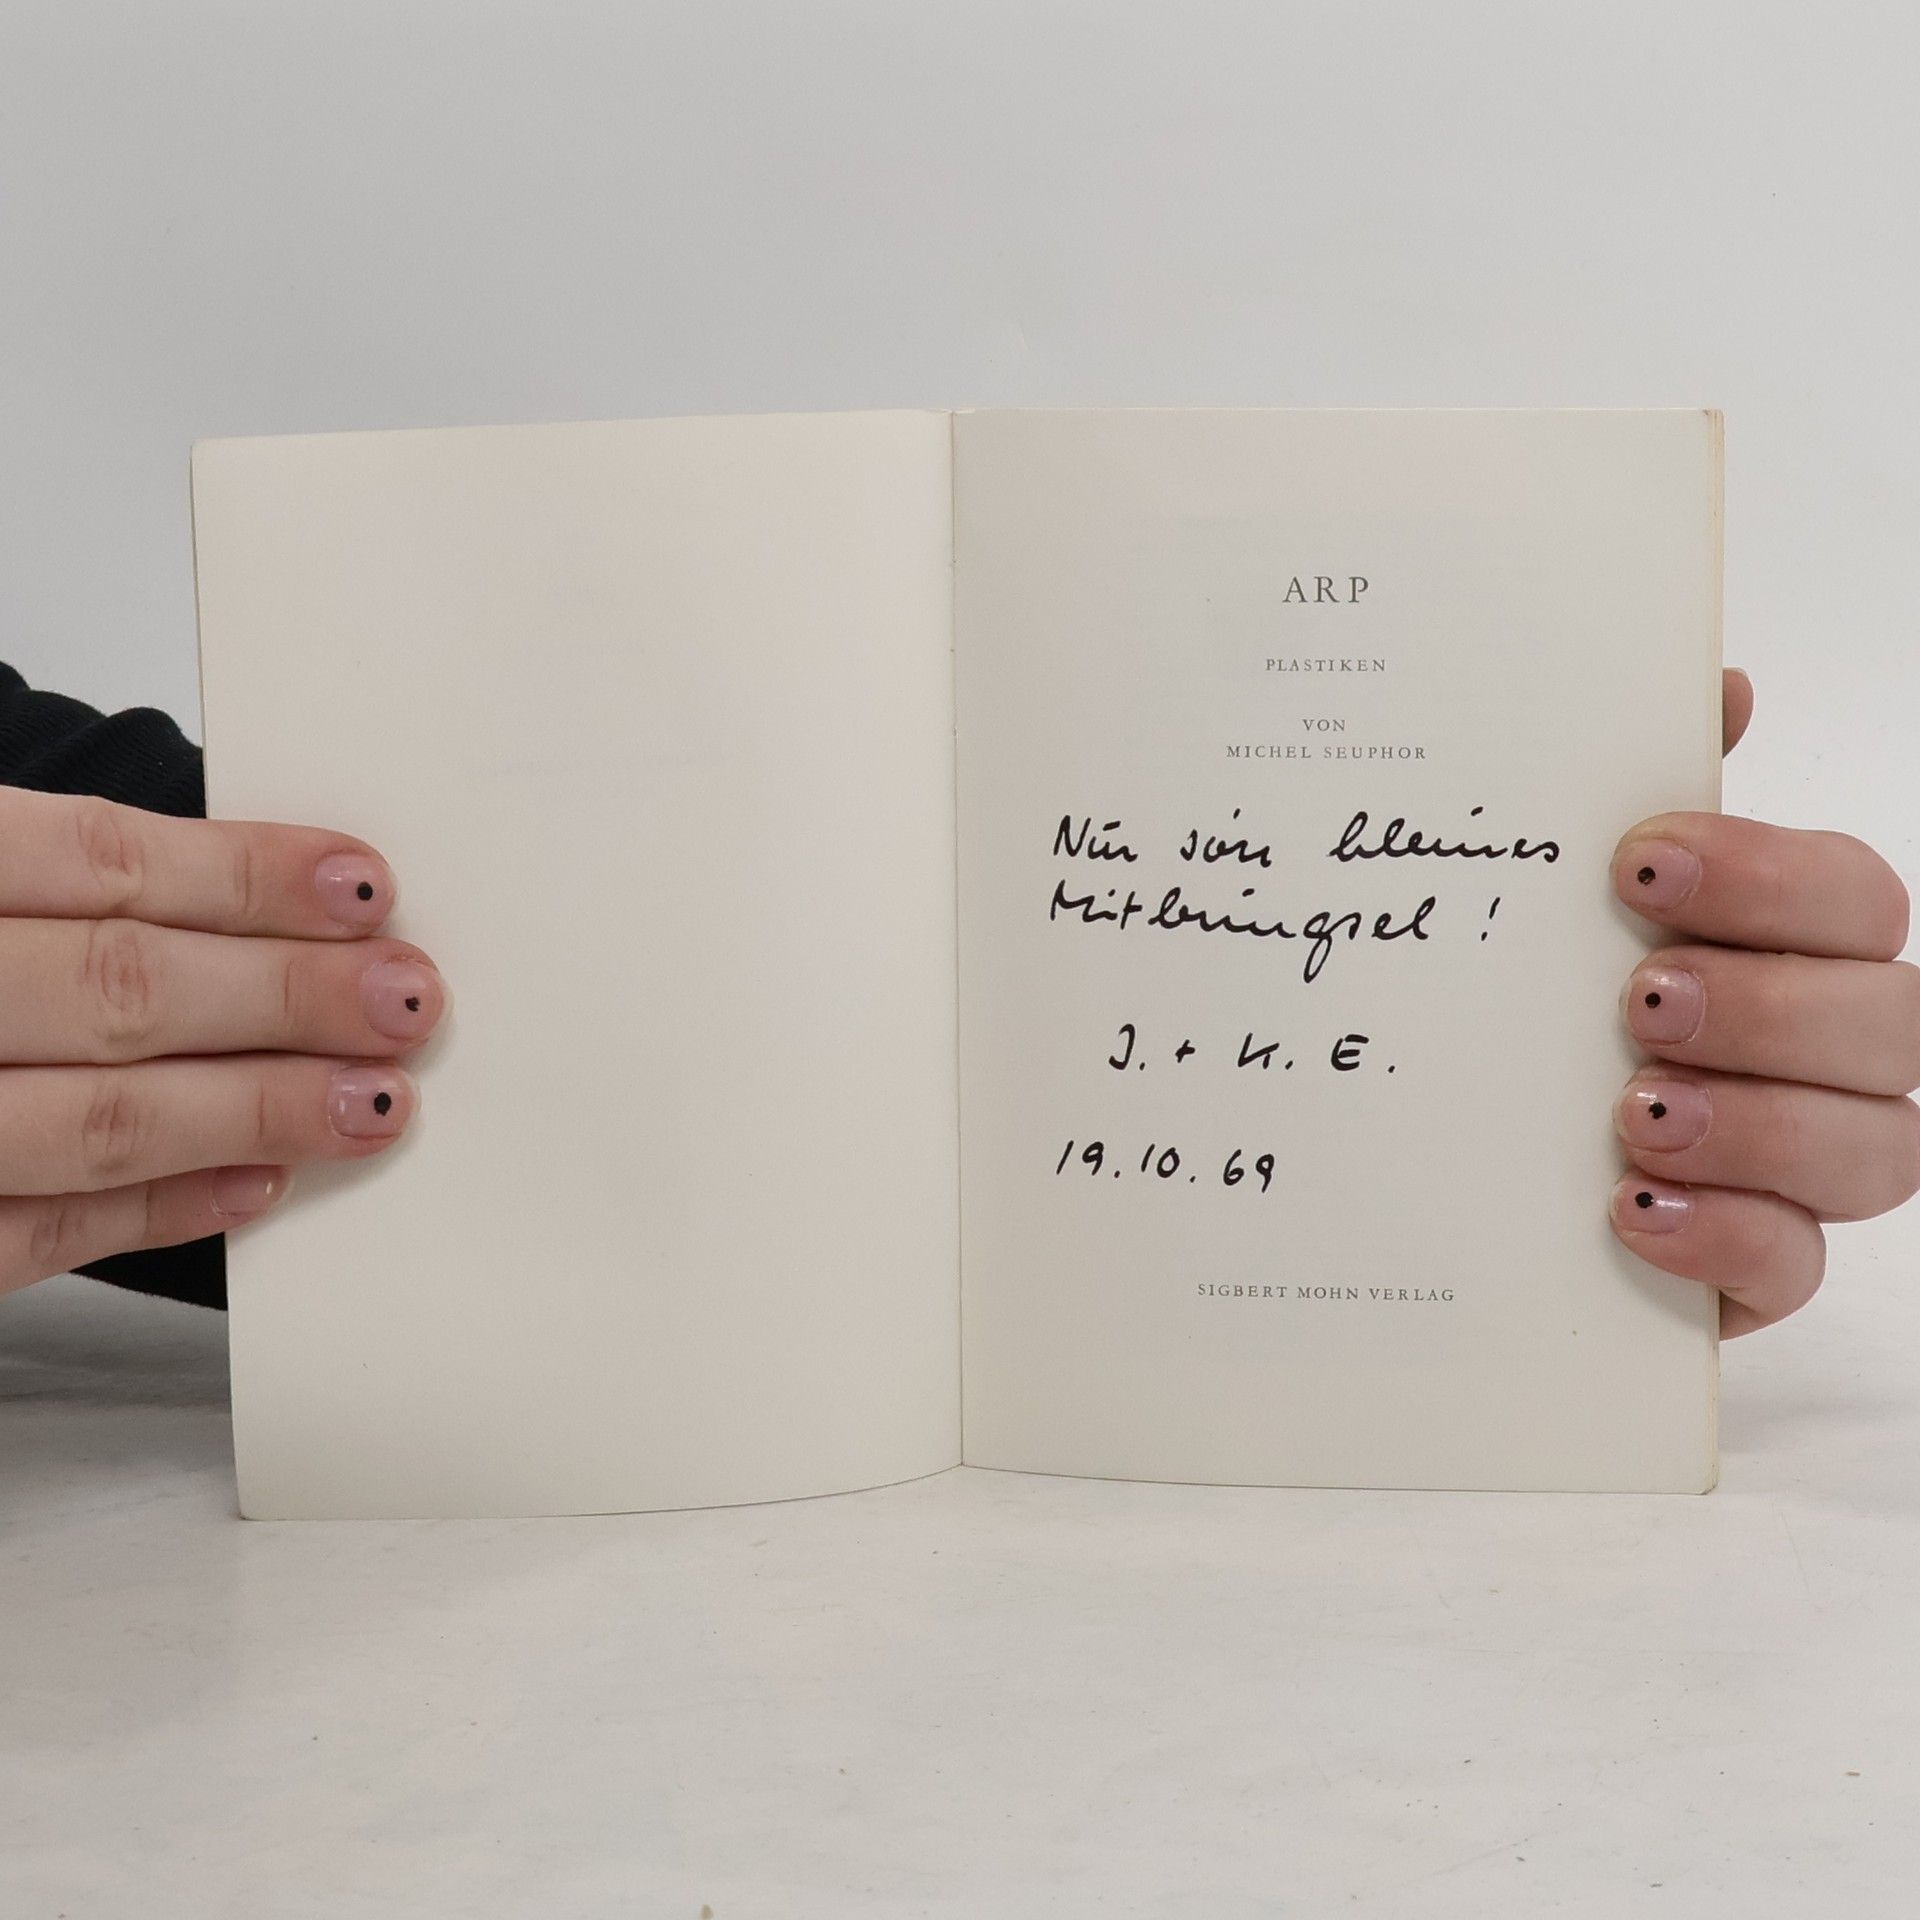 ARP
PLASTIKEN
VON
MICHEL SEUPHOR
Nur so'n kleines
Mitbringsel !
J. + K. E.
19.10.69
SIGBERT MOHN VERLAG